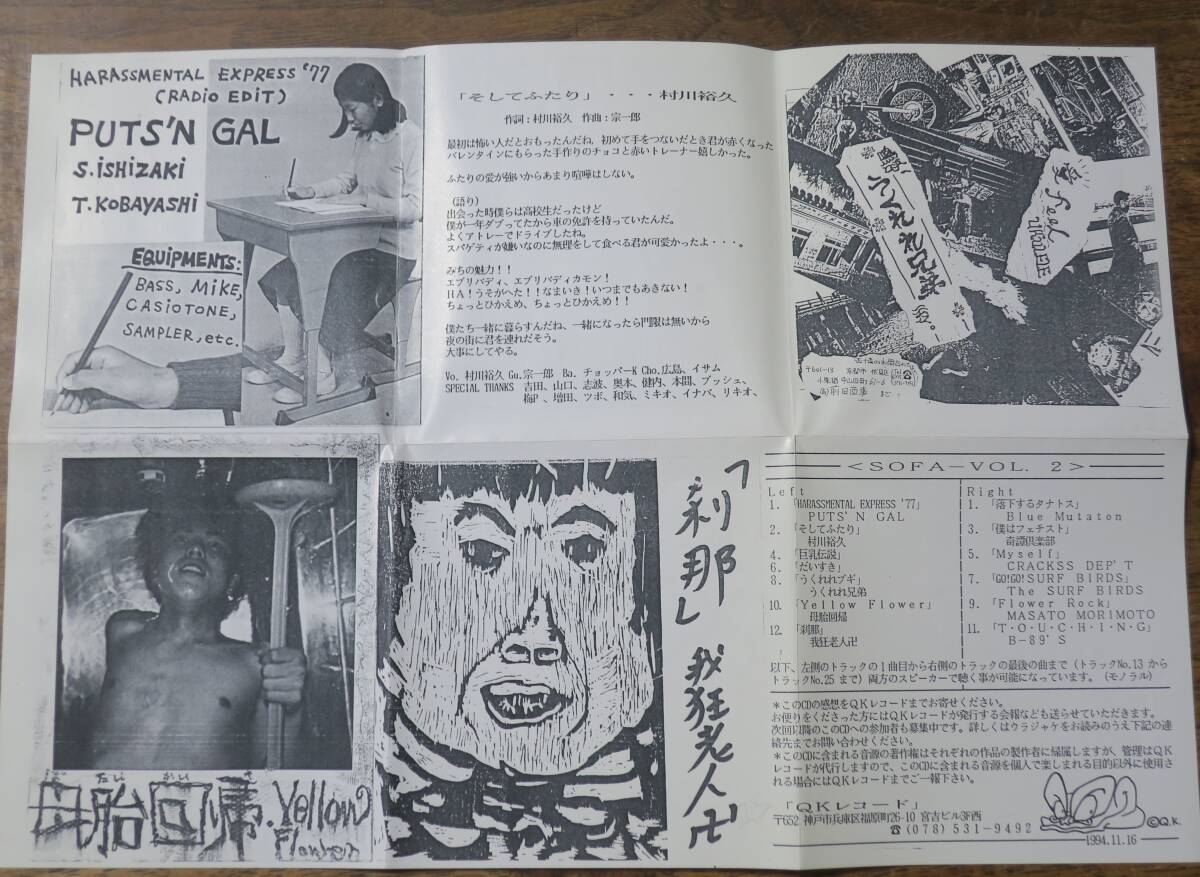 HARASSMENTAL EXPRESS '77
(RADIO EDIT)
PUTS'N GAL
S.ISHIZAKI
T.KOBAYASHI
EQUIPMENTS:
BASS, MIKE,
CASIOTONE,
SAMPLER, etc.
「そしてふたり」・・・村川裕久
作詞:村川裕久 作曲:宗一郎
最初は怖い人だとおもったんだね，初めて手をつないだとき君が赤くなった
バレンタインにもらった手作りのチョコと赤いトレーナー嬉しかった。
ふたりの愛が強いからあまり喧嘩はしない。
(語り)
出会った時僕らは高校生だったけど
僕が一年ダブってたから車の免許を持っていたんだ。
よくアトレーでドライブしたね。
スパゲティが嫌いなのに無理をして食べる君が可愛かったよ・・・。
みちの魅力!!
エブリバディ、エブリバディカモン!
HA!うそがへた!!なまいき!いつまでもあきない!
ちょっとひかえめ、ちょっとひかえめ!!
僕たち一緒に暮らすんだね、一緒になったら門限は無いから
夜の街に君を連れだそう。
大事にしてやる。
Vo.村川裕久 Gu.宗一郎 Ba.チョッパーK Cho.広島、イサム
SPECIAL THANKS 吉田、山口、志波、奥本、健内、本間、ブッシェ、
梅P、増田、ツボ、和気、ミキオ、イナバ、リキオ、
うくれれ兄弟
feel
〒601-13 京都市伏見区
母胎回帰.Yellow
Flower
「刹那」 我狂老人卍
<SOFA-VOL. 2>
Left
1.「HARASSMENTAL EXPRESS '77」
PUTS'N GAL
2.「そしてふたり」
村川裕久
4.「巨乳伝説」
6.「だいすき」
8.「うくれれブギ」
うくれれ兄弟
10.「Yellow Flower」
母胎回帰
12.「刹那」
我狂老人卍
Right
1.「落下するタナトス」
Blue Mutaton
3.「僕はフェチスト」
奇譚倶楽部
5.「Myself」
CRACKSS DEP'T
7.「GO!GO!SURF BIRDS」
The SURF BIRDS
9.「Flower Rock」
MASATO MORIMOTO
11.「T・O・U・C・H・I・N・G」
B-89'S
以下、左側のトラックの1曲目から右側のトラックの最後の曲まで(トラックNo.13 から
トラックNo.25 まで)両方のスピーカーで聴く事が可能になっています。(モノラル)
*このCDの感想をQKレコードまでお寄せください。
お便りをくださった方にはQKレコードが発行する会報なども送らせていただきます。
次回以降のこのCDへの参加者も募集中です。詳しくはウラジャケをお読みのうえ下記の連
絡先までお問い合わせください。
*このCDに含まれる音源の著作権はそれぞれの作品の製作者に帰属しますが、管理はQK
レコードが代行しますので、このCDに含まれる音源を個人で楽しまれる目的以外に使用さ
れる場合にはQKレコードまでご一報下さい。
「QKレコード」
〒652 神戸市兵庫区福原町26-10 宮吉ビル3F西
☎(078)531-9492
©Q.K.
1994.11.16